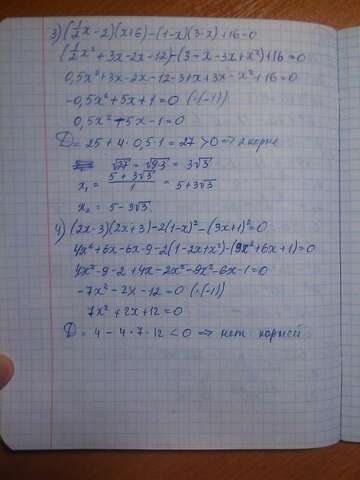 3) (½x-2)(x+6)-(1-x)(3-x)+16=0
(½x²+3x-2x-12)-(3-x-3x+x²)+16=0
0,5x²+3x-2x-12-3+x+3x-x²+16=0
-0,5x²+5x+1=0 (·(-1))
0,5x²-5x-1=0
D=25+4·0,5·1=27>0 ⇒ 2 корня
√27=√9·3=3√3
x₁=(5+3√3)/1=5+3√3
x₂=5-3√3.
4) (2x-3)(2x+3)-2(1-x)²-(3x+1)²=0
4x²+6x-6x-9-2(1-2x+x²)-(9x²+6x+1)=0
4x²-9-2+4x-2x²-9x²-6x-1=0
-7x²-2x-12=0 (·(-1))
7x²+2x+12=0
D=4-4·7·12<0 ⇒ нет корней